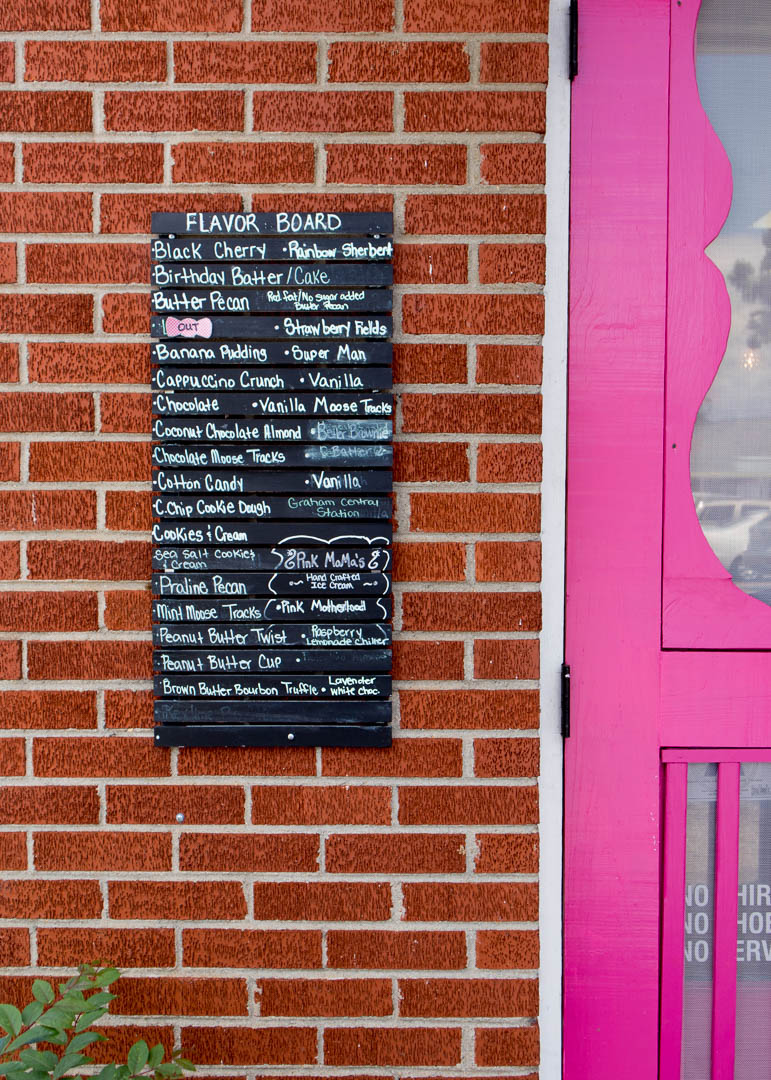 FLAVOR BOARD
Black Cherry • Rainbow Sherbert
Birthday Batter/Cake
Butter Pecan Red. fat/No sugar added Butter Pecan
OUT • Strawberry Fields
• Banana Pudding • Super Man
• Cappuccino Crunch • Vanilla
• Chocolate • Vanilla Moose Tracks
Coconut Chocolate Almond • Brownie
Chocolate Moose Tracks
• Cotton Candy • Vanilla
• C.Chip Cookie Dough Graham Central Station
Cookies & Cream
Sea Salt Cookies & Cream Pink MaMa's
• Praline Pecan Hand Crafted Ice Cream
Mint Moose Tracks • Pink Motherload
• Peanut Butter Twist • Raspberry Lemonade Chiller
• Peanut Butter Cup •
• Brown Butter Bourbon Truffle • Lavender white choc.
NO HIR
NO HOE
NO ERV